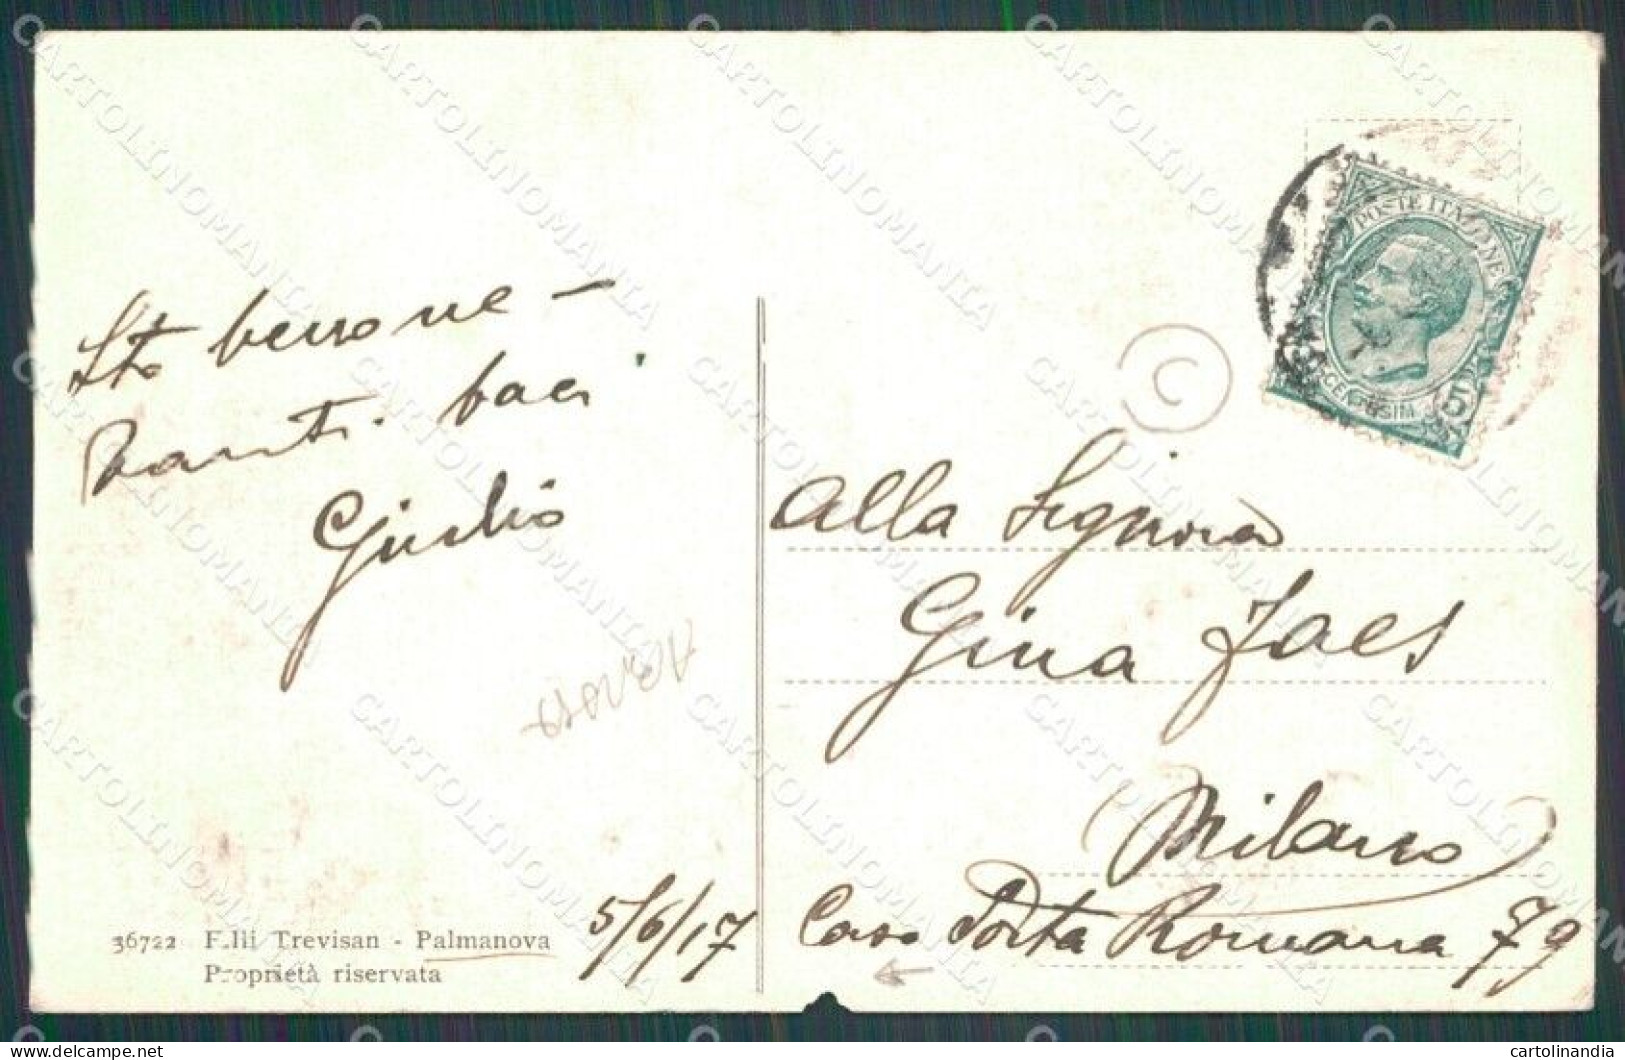 Sto benone –
Tanti baci
Giulio
36722 F.lli Trevisan - Palmanova
Proprietà riservata
5/6/17
POSTE ITALIANE
CENTESIMI 5
C
Alla Signora
Gina Jaes
Milano
Corso Porta Romana 79
CARTOLINOMANIA
delcampe.net
cartolinandia